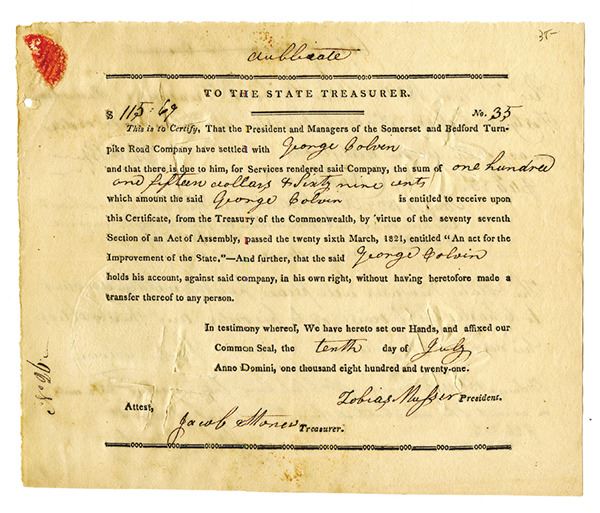 35-
dublicate
TO THE STATE TREASURER.
$ 115:69 No. 35
This is to Certify, That the President and Managers of the Somerset and Bedford Turn-
pike Road Company have settled with George Colvin
and that there is due to him, for Services rendered said Company, the sum of one hundred
and fifteen dollars & Sixty nine cents
which amount the said George Colvin is entitled to receive upon
this Certificate, from the Treasury of the Commonwealth, by virtue of the seventy seventh
Section of an Act of Assembly, passed the twenty sixth March, 1821, entitled "An act for the
Improvement of the State."—And further, that the said George Colvin
holds his account, against said company, in his own right, without having heretofore made a
transfer thereof to any person.
In testimony whereof, We have hereto set our Hands, and affixed our
Common Seal, the tenth day of July
Anno Domini, one thousand eight hundred and twenty-one.
Tobias Musser President.
Attest,
Jacob Treasurer.